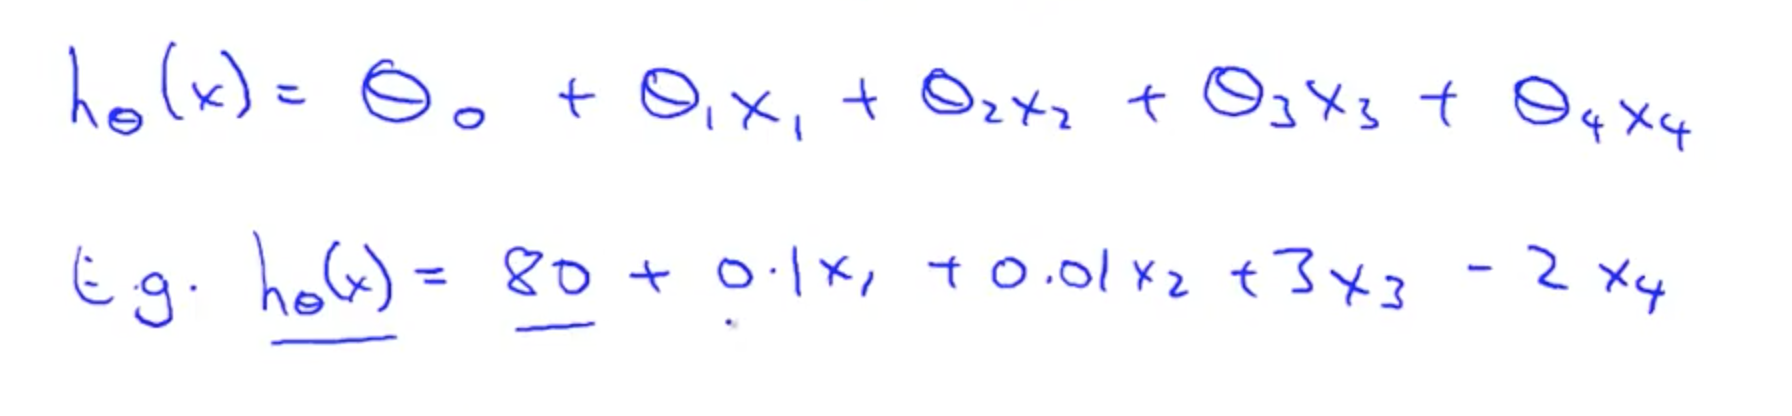 hθ(x) = θ₀ + θ₁x₁ + θ₂x₂ + θ₃x₃ + θ₄x₄
E.g. hθ(x) = 80 + 0.1x₁ + 0.01x₂ + 3x₃ - 2x₄